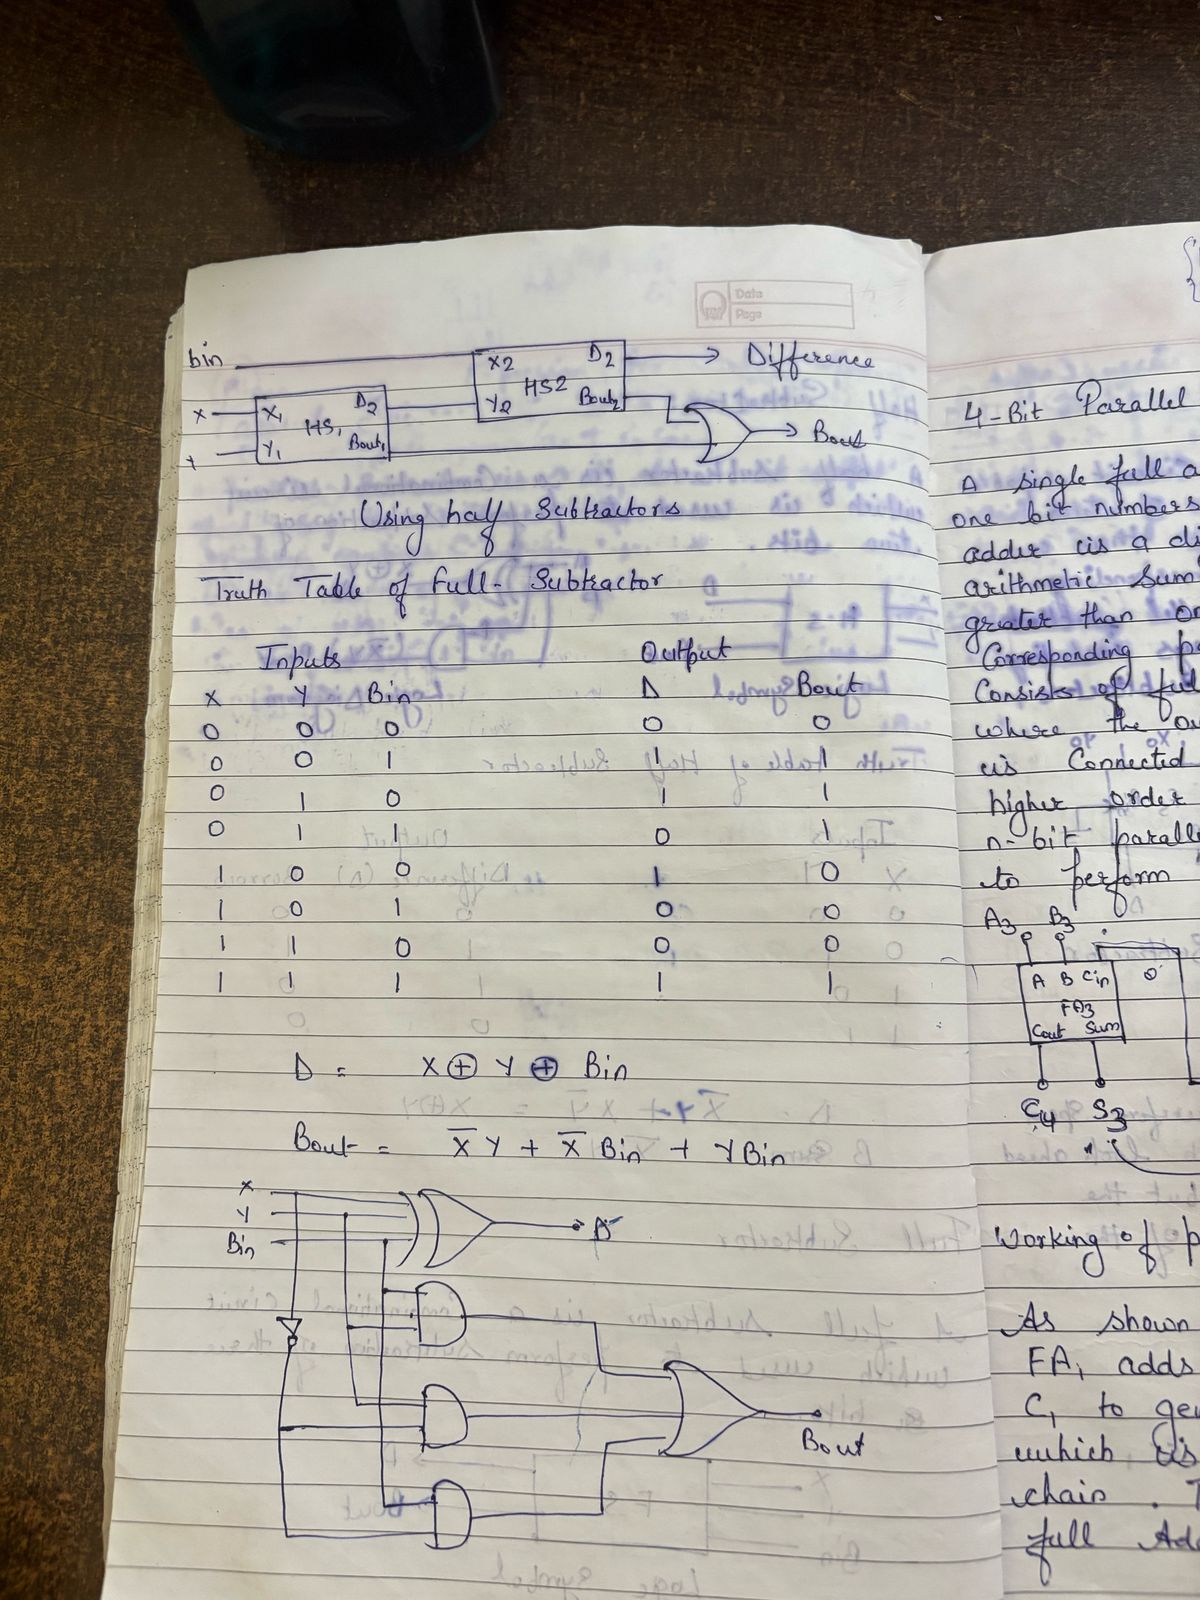 Date
Page
bin
X2 D2
HS2
Y2 Bout2
Difference
X
X1 D2
HS1
Y1 Bout1
Y
Bout
Using half Subtractors
Truth Table of Full-Subtractor
Inputs Output
X Y Bin D Bout
0 0 0 0 0
0 0 1 1 1
0 1 0 1 1
0 1 1 0 1
1 0 0 1 0
1 0 1 0 0
1 1 0 0 0
1 1 1 1 1
D = X ⊕ Y ⊕ Bin
Bout = X̅ Y + X̅ Bin + Y Bin
X
Y
Bin
D
Bout
4-Bit Parallel
A single full a
one bit numbers
adder is a di
arithmetic Sum
greater than on
Corresponding p
Consists of ful
where the ou
is Connected
higher order
n-bit parall
to perform
A3 B3
A B Cin
FA3
Cout Sum
C4 S3
Working of p
As shown
FA1 adds
C1 to ge
which is
chain.
full Ad